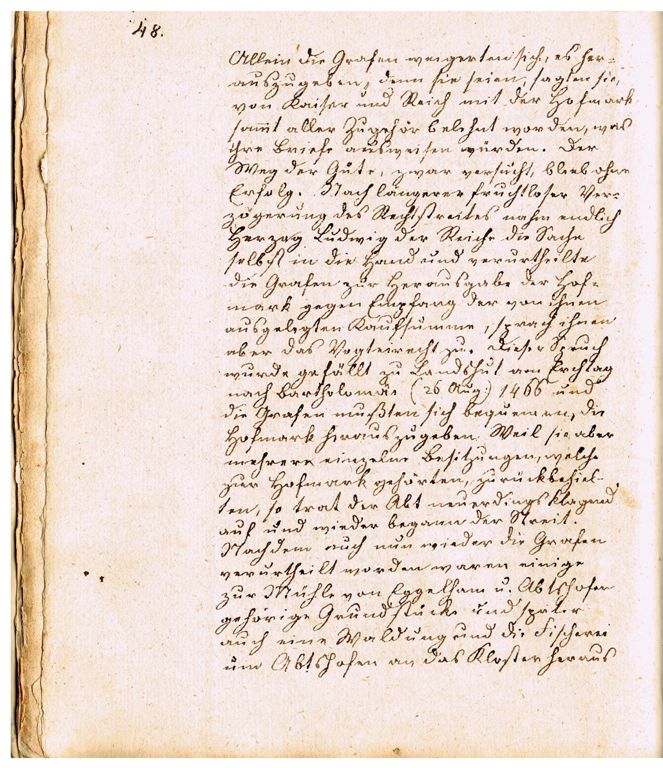 48.
Allein die Grafen weigerten sich, es her-
auszugeben, denn sie seien, sagten sie,
von Kaiser und Reich mit der Hofmark
sammt aller Zugehör belehnt worden, was
ihre Briefe ausweisen würden. Der
Weg der Güte, zwar versucht, blieb ohne
Erfolg. Nach längerer fruchtloser Ver-
zögerung des Rechtsstreites nahm endlich
Herzog Ludwig der Reiche die Sache
selbst in die Hand und verurtheilte
die Grafen zur Herausgabe der Hof-
mark gegen Empfang der von ihnen
ausgelegten Kaufsumme, sprach ihnen
aber das Vogteirecht zu. Dieser Spruch
wurde gefällt zu Landshut am Erchtag
nach Bartholomäi (26 Aug.) 1466 und
die Grafen mußten sich bequemen, die
Hofmark herauszugeben. Weil sie aber
mehrere einzelne Besitzungen, welche
zur Hofmark gehörten, zurückbehiel-
ten, so trat der Abt neuerdings klagend
auf und wieder begann der Streit.
Nachdem auch nun wieder die Grafen
verurtheilt worden waren einige
zur Mühle von Eggelham u. Abtshofen
gehörige Grundstücke und später
auch eine Waldung und die Fischerei
um Abtshofen an das Kloster heraus